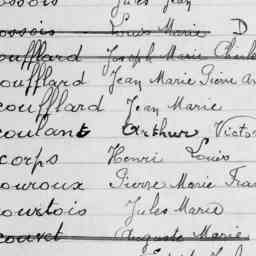 ossois Jules Jean
ossois Louis Marie D
oufflard Joseph Marie Charle
oufflard Jean Marie Pierre An
coufflard Jean Marie
coulant Arthur Victor
corps Henri Louis
ouroux Pierre Marie Fra
ourtois Jules Marie
couvet Auguste Marie